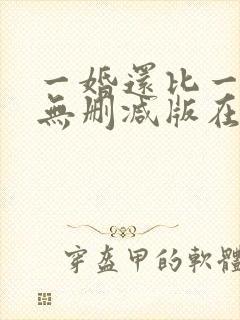 一婚還比一
無刪減版在
穿盔甲的軟體